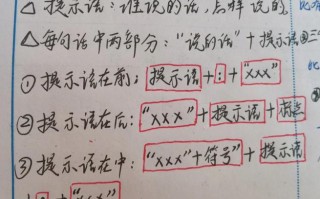 △提示语：谁说的话，怎样说的。
△每句话中两部分："说的话"+提示语
①提示语在前：提示语+：+"xxx"
②提示语在后："xxx"+提示语+标点
③提示语在中："xxx"+符号"+提示语
+"xxx"